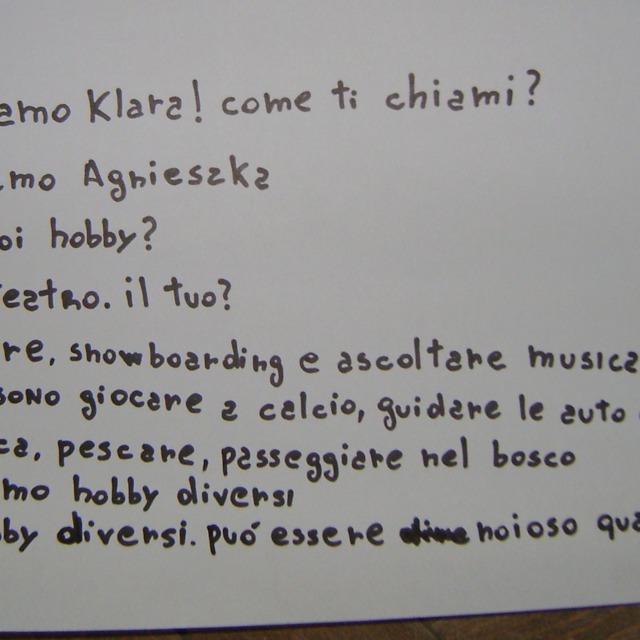 amo Klara! come ti chiami?
mo Agnieszka
oi hobby?
eatro. il tuo?
re, snowboarding e ascoltare musica
sono giocare a calcio, guidare le auto
ca, pescare, passeggiare nel bosco
mo hobby diversi
by diversi. puó essere noioso qua